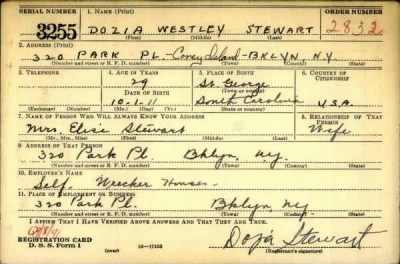 SERIAL NUMBER
1. NAME (Print)
ORDER NUMBER
3255
DOZIA WESTLEY STEWART
2832
(First) (Middle) (Last)
2. ADDRESS (Print)
320 PARK PL. - Coney Island - BKLYN N.Y.
(Number and street or R. F. D. number) (Town) (County) (State)
3. TELEPHONE
4. AGE IN YEARS
5. PLACE OF BIRTH
6. COUNTRY OF CITIZENSHIP
29
St. George
DATE OF BIRTH
(Town or county)
10-1-11
South Carolina
U.S.A.
(Exchange) (Number)
(Mo.) (Day) (Yr.)
(State or country)
7. NAME OF PERSON WHO WILL ALWAYS KNOW YOUR ADDRESS
8. RELATIONSHIP OF THAT PERSON
Mrs. Elise Stewart
Wife
(Mr., Mrs., Miss) (First) (Middle) (Last)
9. ADDRESS OF THAT PERSON
320 Park Pl. Bklyn, Ny.
(Number and street or R. F. D. number) (Town) (County) (State)
10. EMPLOYER'S NAME
Self - Wrecker Houses
11. PLACE OF EMPLOYMENT OR BUSINESS
320 Park Pl. Bklyn Ny
(Number and street or R. F. D. number) (Town) (County) (State)
I AFFIRM THAT I HAVE VERIFIED ABOVE ANSWERS AND THAT THEY ARE TRUE.
REGISTRATION CARD
D. S. S. Form 1
16-17105
Dozia Stewart
(Registrant's signature)